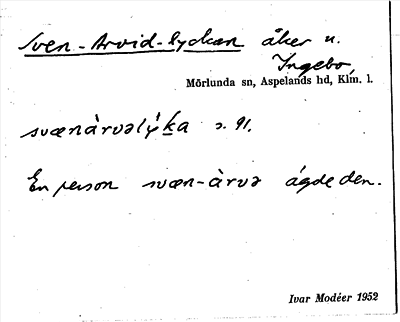 Sven-Arvid-lyckan åker u.
Ingebo,
Mörlunda sn, Aspelands hd, Klm. l.
svænàrvəlỳka s. 91.
En person svæn-àrvə ágde den.
Ivar Modéer 1952